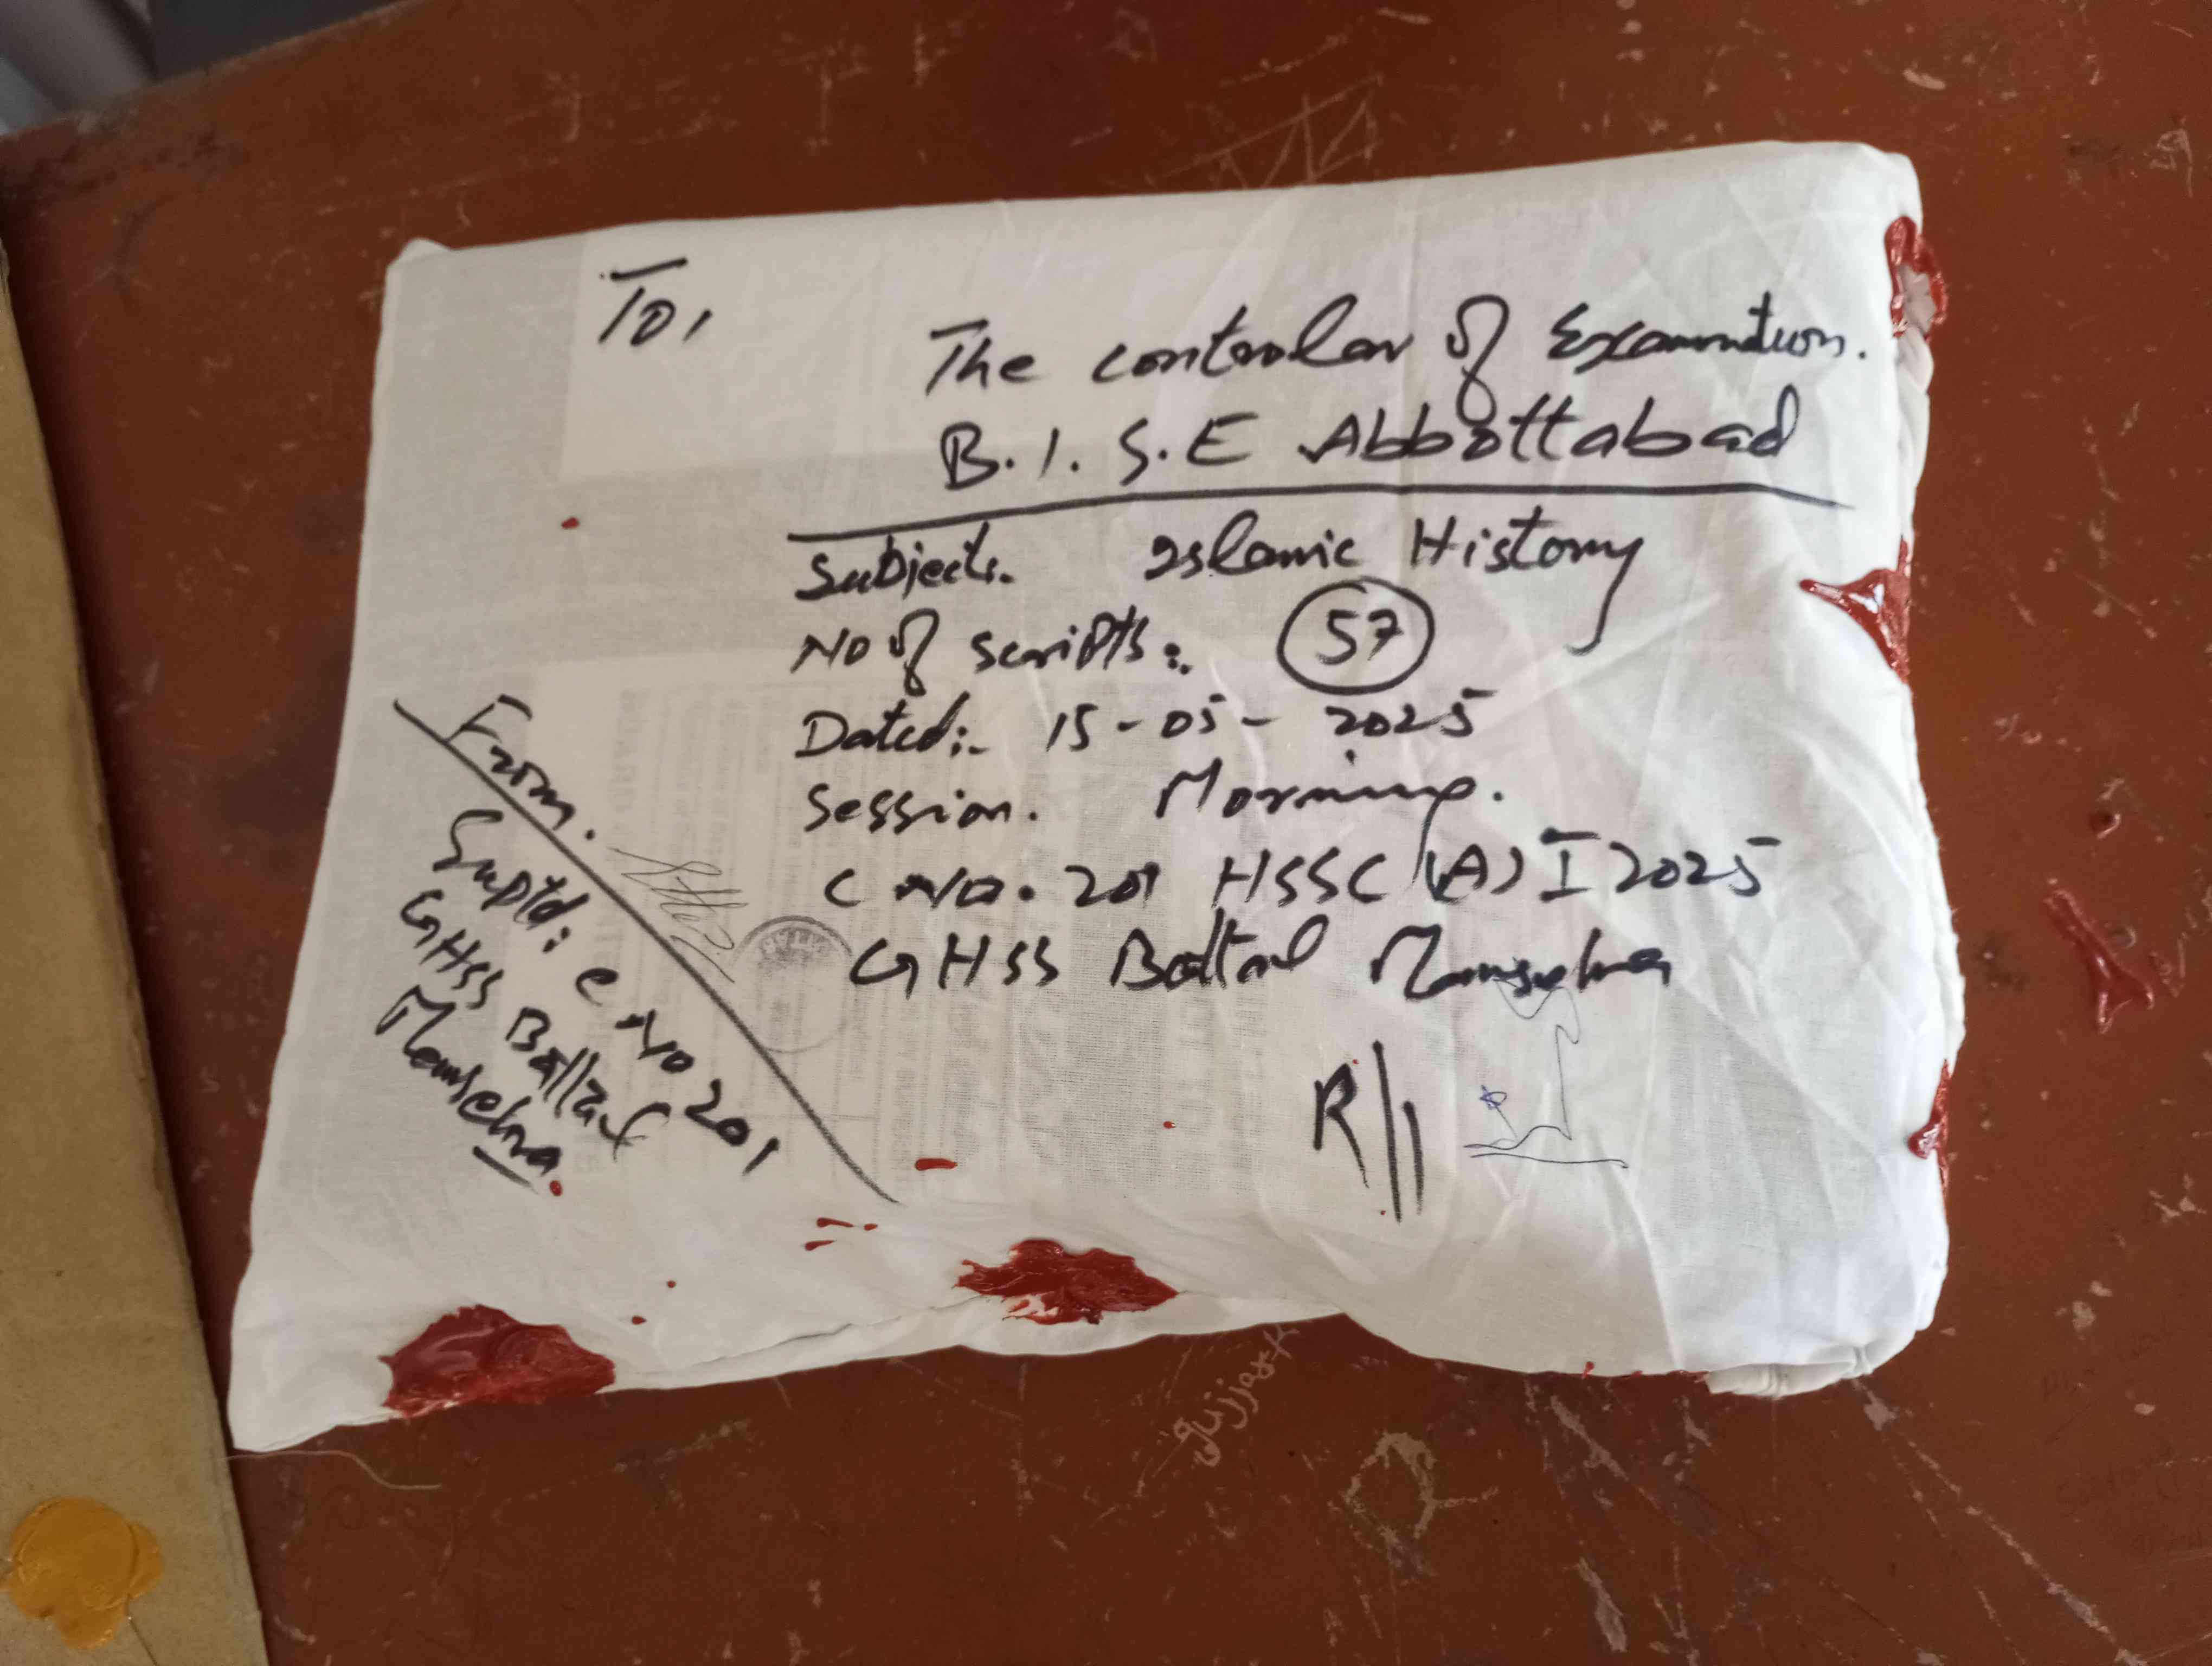 To,
The controlar of Examination.
B.I.S.E Abbottabad
Subject:. Islamic History
No of scripts:. 57
Dated:- 15-05-2025
Session. Morning.
C No. 201 HSSC (A) I 2025
GHSS Battal Mansehra
R//
From.
Suptd: C No 201
GHSS Battal
Mansehra.
gujjar